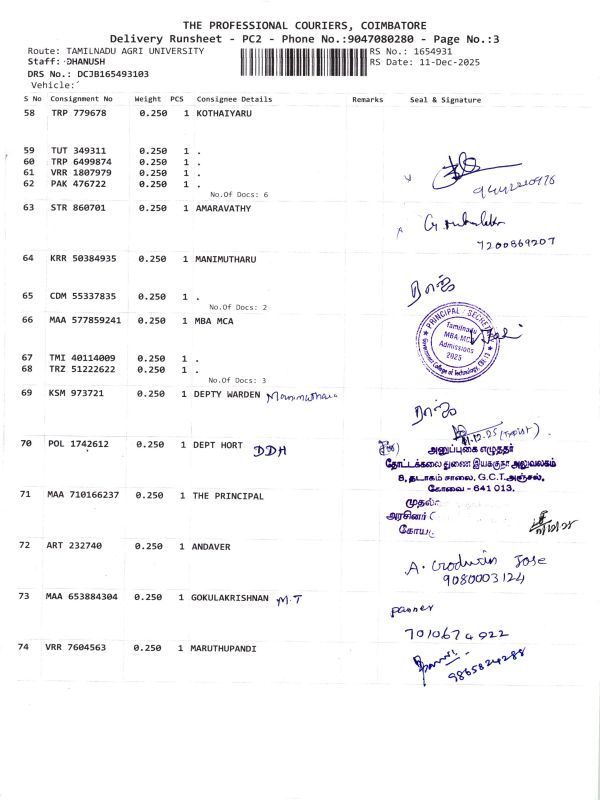 THE PROFESSIONAL COURIERS, COIMBATORE
Delivery Runsheet - PC2 - Phone No.:9047080280 - Page No.:3
Route: TAMILNADU AGRI UNIVERSITY RS No.: 1654931
Staff: DHANUSH RS Date: 11-Dec-2025
DRS No.: DCJB165493103
Vehicle:
S No Consignment No Weight PCS Consignee Details Remarks Seal & Signature
58 TRP 779678 0.250 1 KOTHAIYARU
59 TUT 349311 0.250 1 .
60 TRP 6499874 0.250 1 .
61 VRR 1807979 0.250 1 .
62 PAK 476722 0.250 1 .
No.Of Docs: 6
63 STR 860701 0.250 1 AMARAVATHY
7200869207
64 KRR 50384935 0.250 1 MANIMUTHARU
65 CDM 55337835 0.250 1 .
No.Of Docs: 2
66 MAA 577859241 0.250 1 MBA MCA
PRINCIPAL / SECRE
Tamilnadu
MBA MCA
Admissions
2025
Government College of Technology, CBE-13
67 TMI 40114009 0.250 1 .
68 TRZ 51222622 0.250 1 .
No.Of Docs: 3
69 KSM 973721 0.250 1 DEPTY WARDEN
70 POL 1742612 0.250 1 DEPT HORT DDH
அனுப்புகை எழுத்தர்
தோட்டக்கலை துணை இயக்குநர் அலுவலகம்
8, தடாகம் சாலை, G.C.T.அஞ்சல்,
கோவை - 641 013.
71 MAA 710166237 0.250 1 THE PRINCIPAL
முதல்
அரசினர்
72 ART 232740 0.250 1 ANDAVER
A. Jose
9080003124
73 MAA 653884304 0.250 1 GOKULAKRISHNAN M.T
7010674022
74 VRR 7604563 0.250 1 MARUTHUPANDI
9865824288